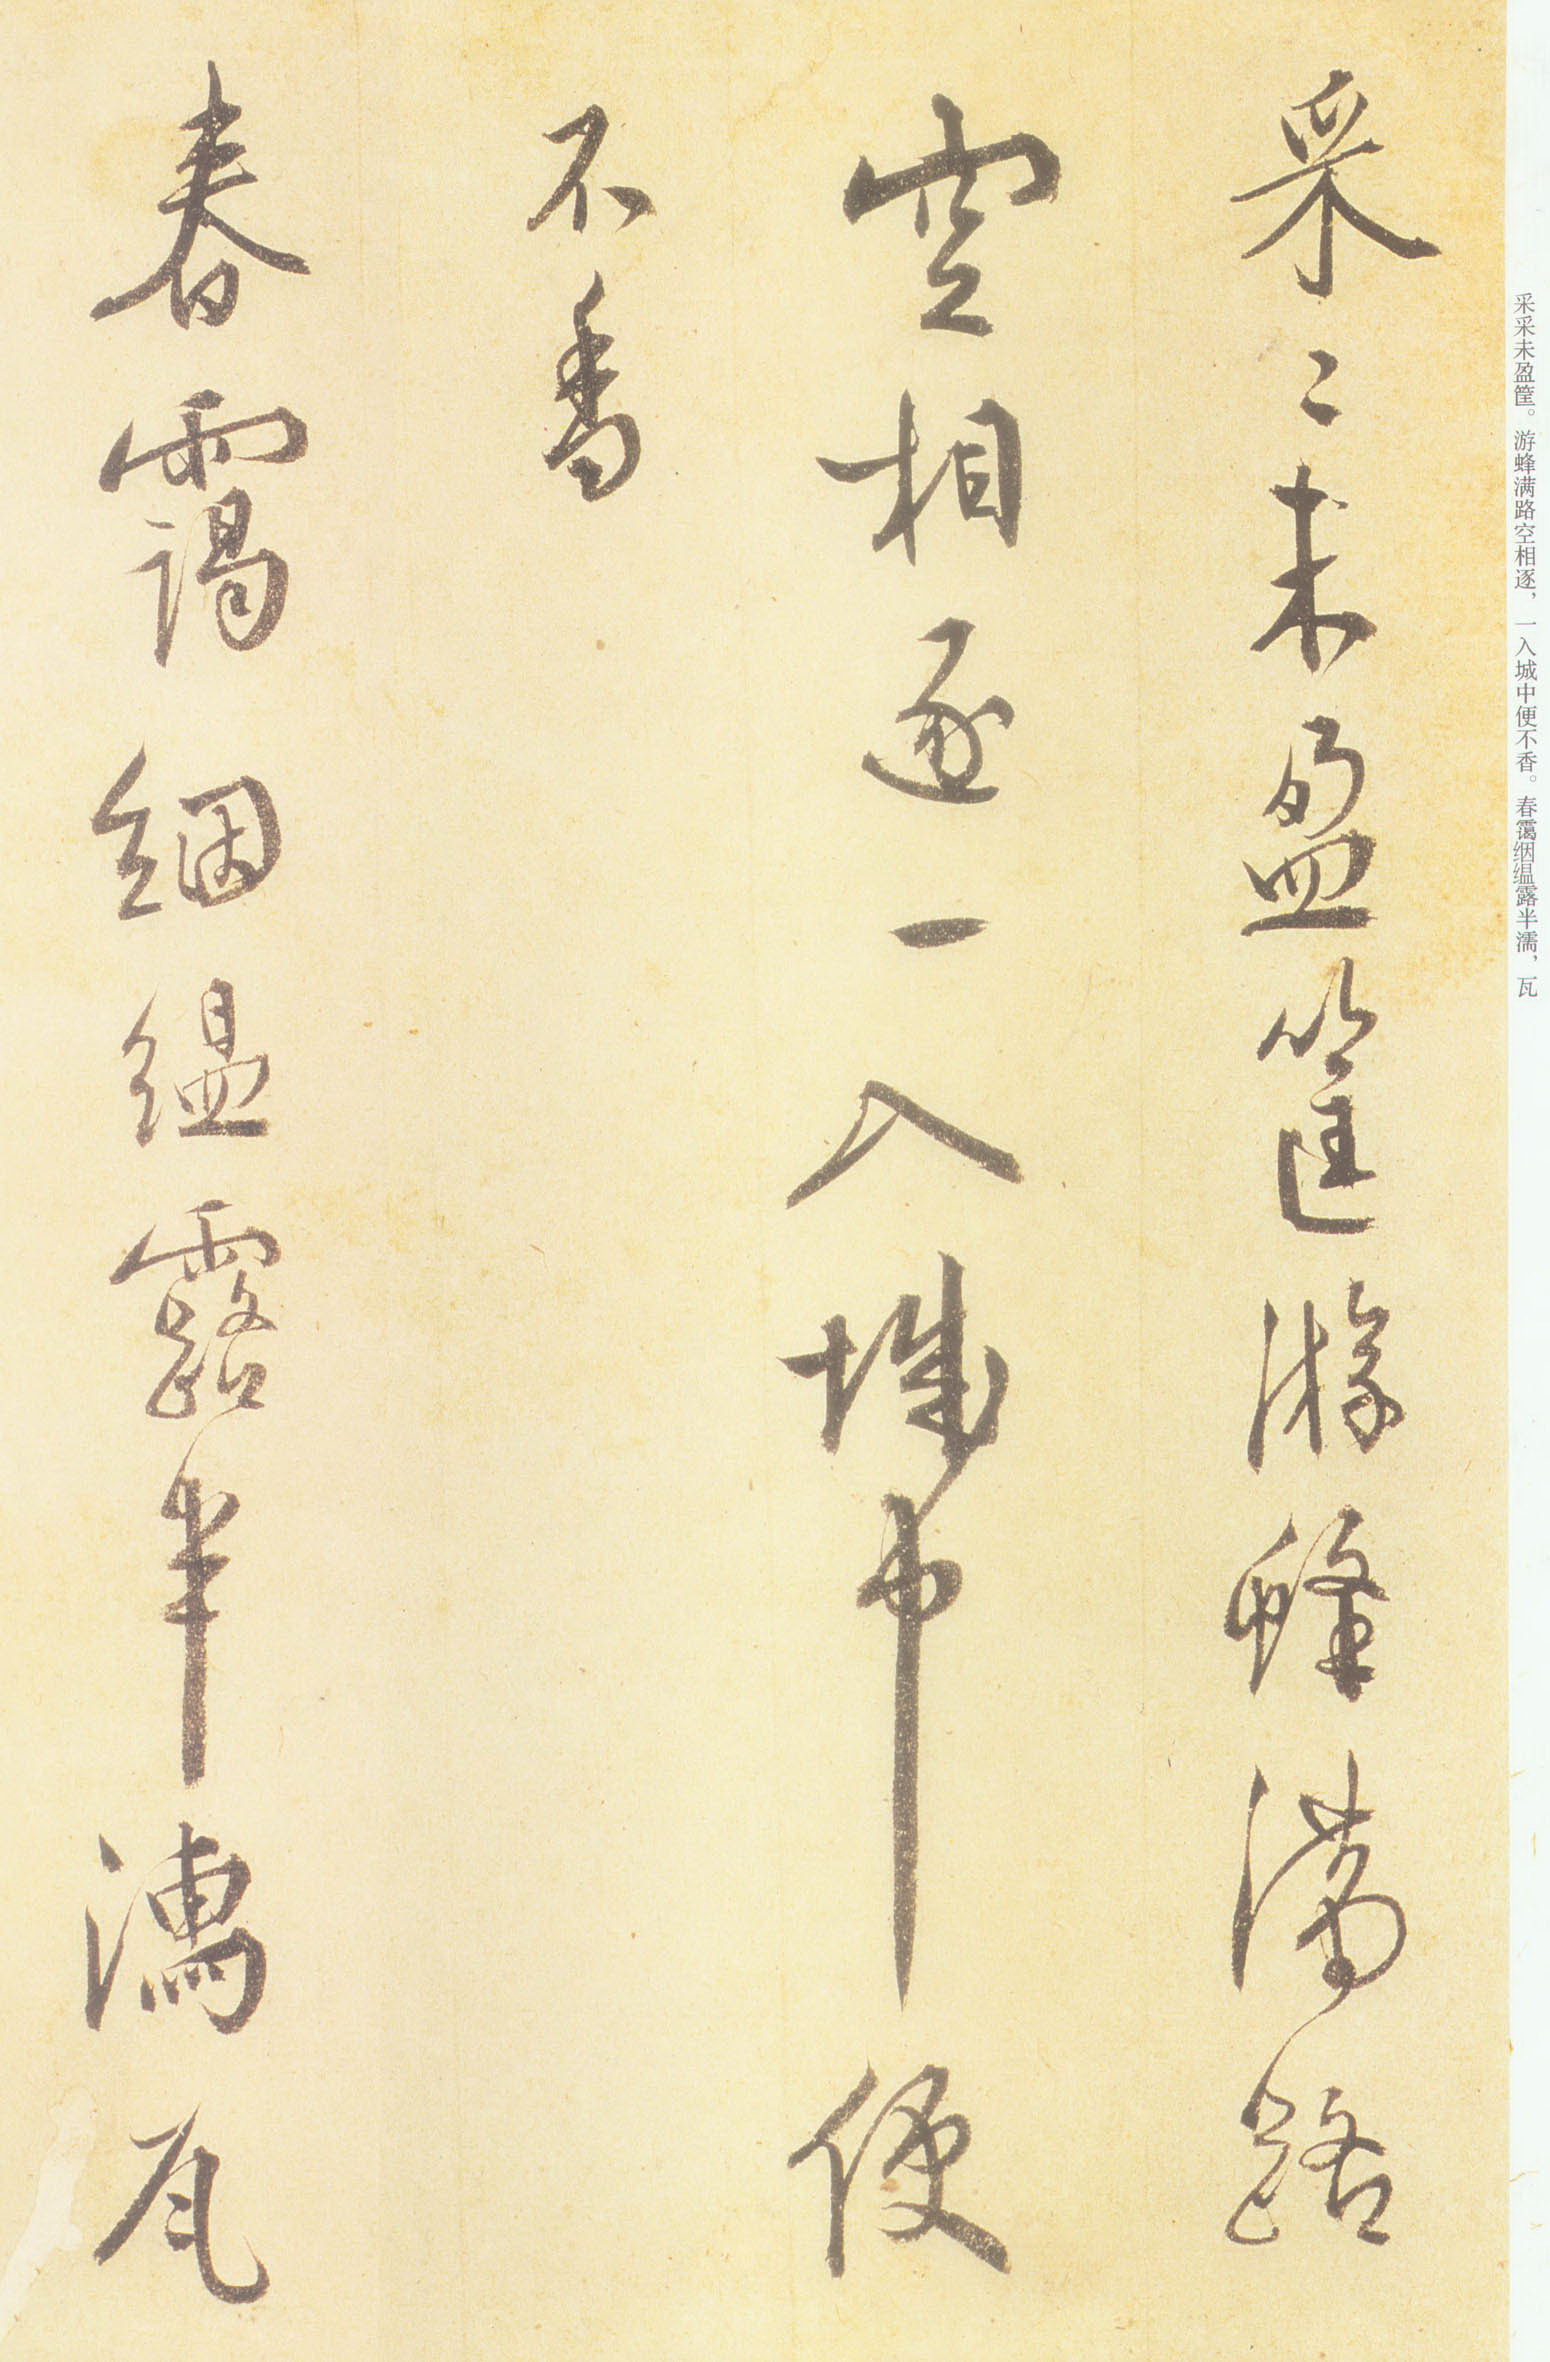 采采未盈筐。游蜂满路空相逐，一入城中便不香。春霭絪缊露半濡，瓦
采〻未盈筐游蜂满路
空相逐一入城中便
不香
春靄絪緼露半濡瓦